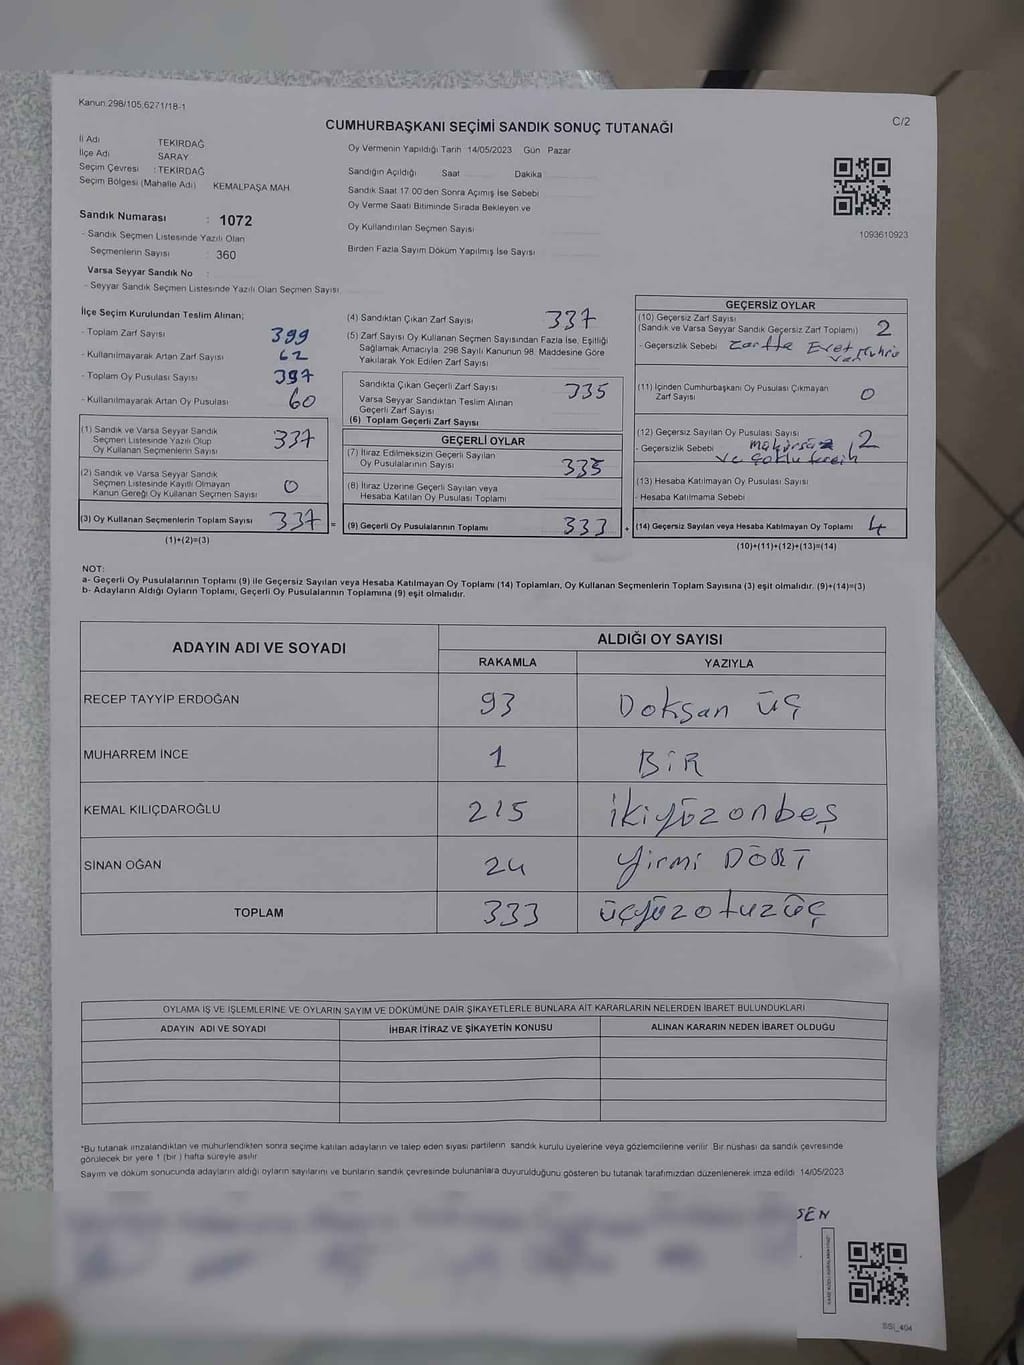 Kanun:298/105,6271/18-1
C/2
CUMHURBAŞKANI SEÇİMİ SANDIK SONUÇ TUTANAĞI
İl Adı TEKİRDAĞ
İlçe Adı SARAY
Seçim Çevresi : TEKİRDAĞ
Seçim Bölgesi (Mahalle Adı) KEMALPAŞA MAH
Sandık Numarası : 1072
- Sandık Seçmen Listesinde Yazılı Olan
Seçmenlerin Sayısı : 360
Varsa Seyyar Sandık No :
- Seyyar Sandık Seçmen Listesinde Yazılı Olan Seçmen Sayısı
Oy Vermenin Yapıldığı Tarih 14/05/2023 Gün Pazar
Sandığın Açıldığı Saat Dakika
Sandık Saat 17 00'den Sonra Açımış İse Sebebi
Oy Verme Saati Bitiminde Sırada Bekleyen ve
Oy Kullandırılan Seçmen Sayısı
Birden Fazla Sayım Döküm Yapılmış İse Sayısı
1093610923
İlçe Seçim Kurulundan Teslim Alınan;
- Toplam Zarf Sayısı 399
- Kullanılmayarak Artan Zarf Sayısı 62
- Toplam Oy Pusulası Sayısı 397
- Kullanılmayarak Artan Oy Pusulası 60
(1) Sandık ve Varsa Seyyar Sandık
Seçmen Listesinde Yazılı Olup
Oy Kullanan Seçmenlerin Sayısı 337
(2) Sandık ve Varsa Seyyar Sandık
Seçmen Listesinde Kayıtlı Olmayan
Kanun Gereği Oy Kullanan Seçmen Sayısı 0
(3) Oy Kullanan Seçmenlerin Toplam Sayısı 337 =
(1)+(2)=(3)
(4) Sandıktan Çıkan Zarf Sayısı 337
(5) Zarf Sayısı Oy Kullanan Seçmen Sayısından Fazla İse, Eşitliği
Sağlamak Amacıyla 298 Sayılı Kanunun 98. Maddesine Göre
Yakılarak Yok Edilen Zarf Sayısı
Sandıkta Çıkan Geçerli Zarf Sayısı 335
Varsa Seyyar Sandıktan Teslim Alınan
Geçerli Zarf Sayısı
(6) Toplam Geçerli Zarf Sayısı
GEÇERLİ OYLAR
(7) İtiraz Edilmeksizin Geçerli Sayılan
Oy Pusulalarının Sayısı 333
(8) İtiraz Üzerine Geçerli Sayılan veya
Hesaba Katılan Oy Pusulası Toplamı
(9) Geçerli Oy Pusulalarının Toplamı 333 +
GEÇERSİZ OYLAR
(10) Geçersiz Zarf Sayısı
(Sandık ve Varsa Seyyar Sandık Geçersiz Zarf Toplamı) 2
- Geçersizlik Sebebi zarfta Evet mührü
var
(11) İçinden Cumhurbaşkanı Oy Pusulası Çıkmayan
Zarf Sayısı 0
(12) Geçersiz Sayılan Oy Pusulası Sayısı 2
- Geçersizlik Sebebi
ve çoklu tercih
(13) Hesaba Katılmayan Oy Pusulası Sayısı
- Hesaba Katılmama Sebebi
(14) Geçersiz Sayılan veya Hesaba Katılmayan Oy Toplamı 4
(10)+(11)+(12)+(13)=(14)
NOT:
a- Geçerli Oy Pusulalarının Toplamı (9) ile Geçersiz Sayılan veya Hesaba Katılmayan Oy Toplamı (14) Toplamları, Oy Kullanan Seçmenlerin Toplam Sayısına (3) eşit olmalıdır. (9)+(14)=(3)
b- Adayların Aldığı Oyların Toplamı, Geçerli Oy Pusulalarının Toplamına (9) eşit olmalıdır.
ADAYIN ADI VE SOYADI
ALDIĞI OY SAYISI
RAKAMLA YAZIYLA
RECEP TAYYİP ERDOĞAN 93 Doksan üç
MUHARREM İNCE 1 BİR
KEMAL KILIÇDAROĞLU 215 ikiyüzonbeş
SİNAN OĞAN 24 yirmi DÖRT
TOPLAM 333 üçyüzotuzüç
OYLAMA İŞ VE İŞLEMLERİNE VE OYLARIN SAYIM VE DÖKÜMÜNE DAİR ŞİKAYETLERLE BUNLARA AİT KARARLARIN NELERDEN İBARET BULUNDUKLARI
ADAYIN ADI VE SOYADI İHBAR İTİRAZ VE ŞİKAYETİN KONUSU ALINAN KARARIN NEDEN İBARET OLDUĞU
*Bu tutanak imzalandıktan ve mühürlendikten sonra seçime katılan adayların ve talep eden siyasi partilerin sandık kurulu üyelerine veya gözlemcilerine verilir. Bir nüshası da sandık çevresinde
görülecek bir yere 1 (bir) hafta süreyle asılır
Sayım ve döküm sonucunda adayların aldığı oyların sayılarını ve bunların sandık çevresinde bulunanlara duyurulduğunu gösteren bu tutanak tarafımızdan düzenlenerek imza edildi 14/05/2023
SEN
SSI_404